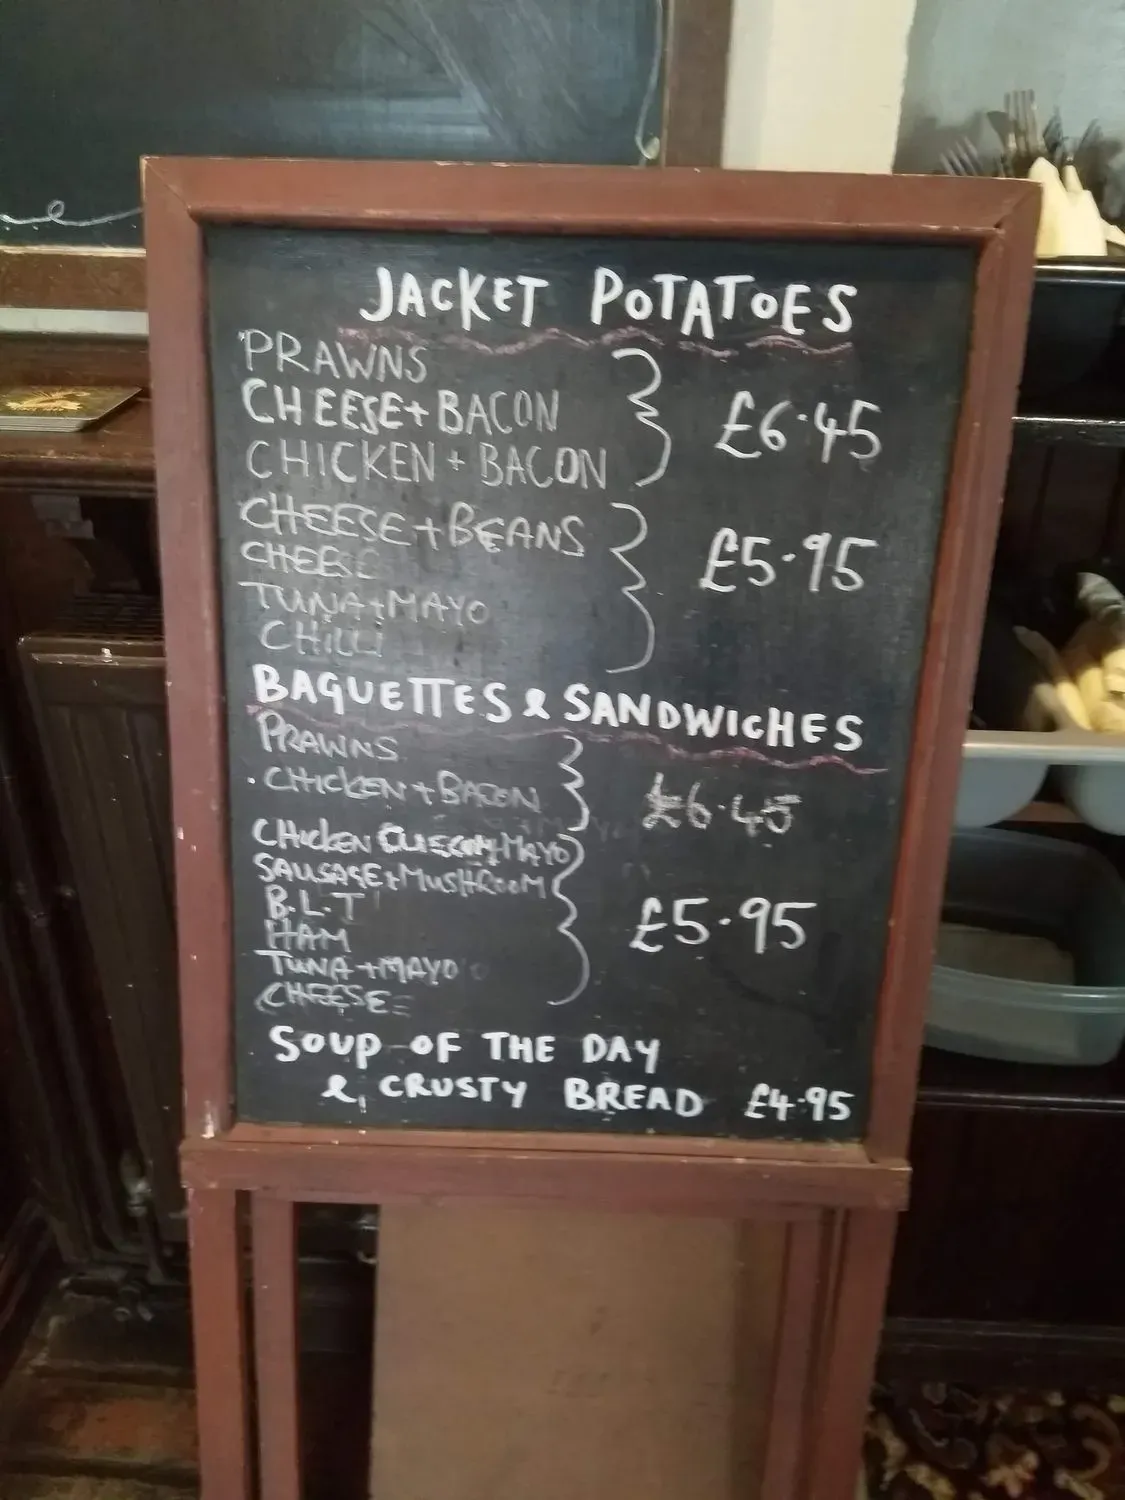 JACKET POTATOES
PRAWNS
CHEESE + BACON
CHICKEN + BACON
£6.45
CHEESE + BEANS
CHEESE
TUNA + MAYO
CHILLI
£5.95
BAGUETTES & SANDWICHES
PRAWNS
CHICKEN + BACON
£6.45
CHICKEN + MAYO
SAUSAGE + MUSHROOM
B.L.T
HAM
TUNA + MAYO
CHEESE
£5.95
SOUP OF THE DAY
& CRUSTY BREAD £4.95